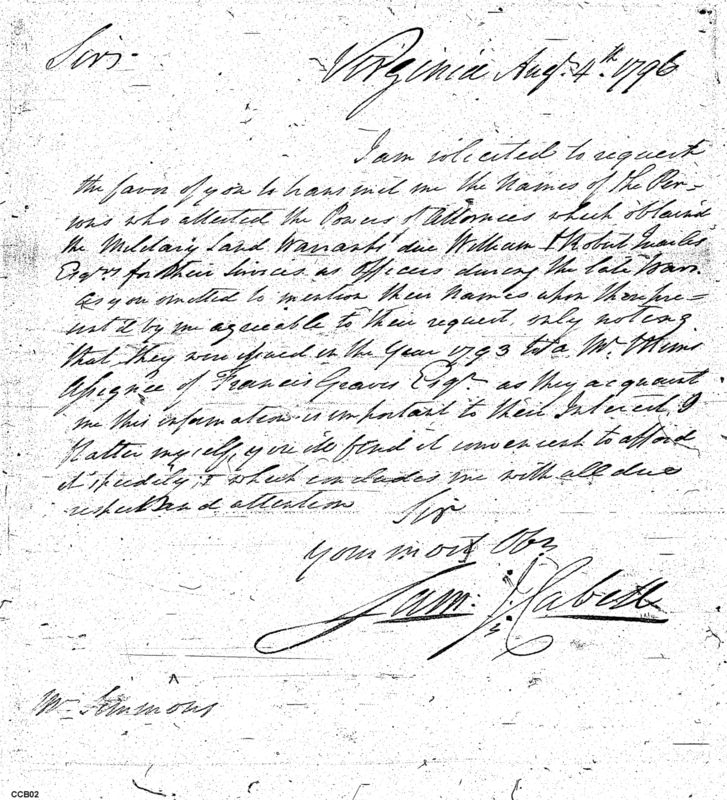 Sir.
Virginia Augt. 4th. 1796
I am solicited to request
the favor of you to transmit me the Names of the Per-
sons who attested the Powers of Attornees which obtained
the Military Land Warrants due William & Robert Quarles
Esqrs for their Services as Officers during the late War.
As you omitted to mention their Names upon them pre-
sent'd by me agreeable to their request, only noting
that they were issued in the Year 1793 to a Mr.
Assignee of Francis Graves Esqr. as they acquaint
me this information is important to their Interest, I
flatter myself, you'ill find it convenient to afford
it speedily, & which concludes me with all due
respect and attention
Sir
your most Obt.
Sam: J. Cabell
Mr. Simmons
CCB02